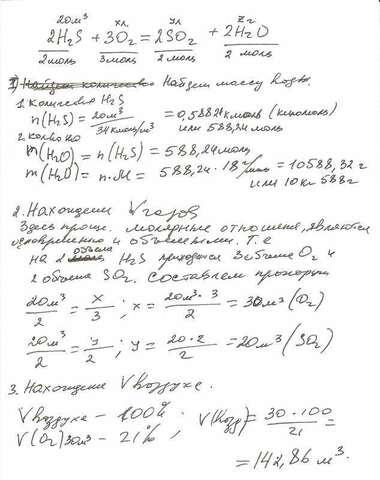 20м³ xл. yл zг
2H₂S + 3O₂ = 2SO₂ + 2H₂O
2моль 3моль 2моль 2 моль
1) Найдем количество Найдем массу воды.
1. Количество H₂S
n(H₂S) = 20м³ / 34кмоль/м³ = 0,58824кмоль (киломоль) или 588,24 моль
2. Кольво
m(H₂O) = n(H₂S) = 588,24моль
m(H₂O) = n·M = 588,24·18г/моль = 10588,32г
или 10кг 588г
2. Нахождение V газов
Здесь проще. молярные отношения, являются
одновременно и объемными. Т.е
на 2 моль объема H₂S приходится 3 объема O₂ и
2 объема SO₂. Составляем пропорции
20м³/2 = x/3 ; x = 20м³·3/2 = 30м³ (O₂)
20м³/2 = y/2 ; y = 20·2/2 = 20м³ (SO₂)
3. Нахождение V воздуха.
V воздуха - 100% . V(возд) = 30·100/21 =
V(O₂) 30м³ - 21% ;
= 142,86 м³.